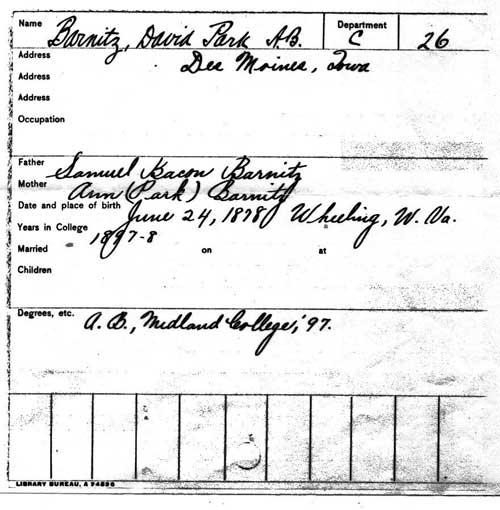 Name Barnitz, David Park A.B. Department C 26
Address Des Moines, Iowa
Address
Address
Occupation
Father Samuel Bacon Barnitz
Mother Ann (Park) Barnitz
Date and place of birth June 24, 1878 Wheeling, W. Va.
Years in College 1897-8
Married on at
Children
Degrees, etc. A.B., Midland College, '97.
LIBRARY BUREAU, A 74826